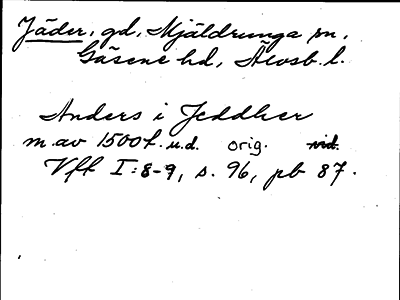 Jäder, gd, Mjäldrunga sn,
Gäsene hd, Älvsb. l.
Anders i Jeddher
m. av 1500t. u.d. orig. vid.
Vff I:8-9, s. 96, pb 87.